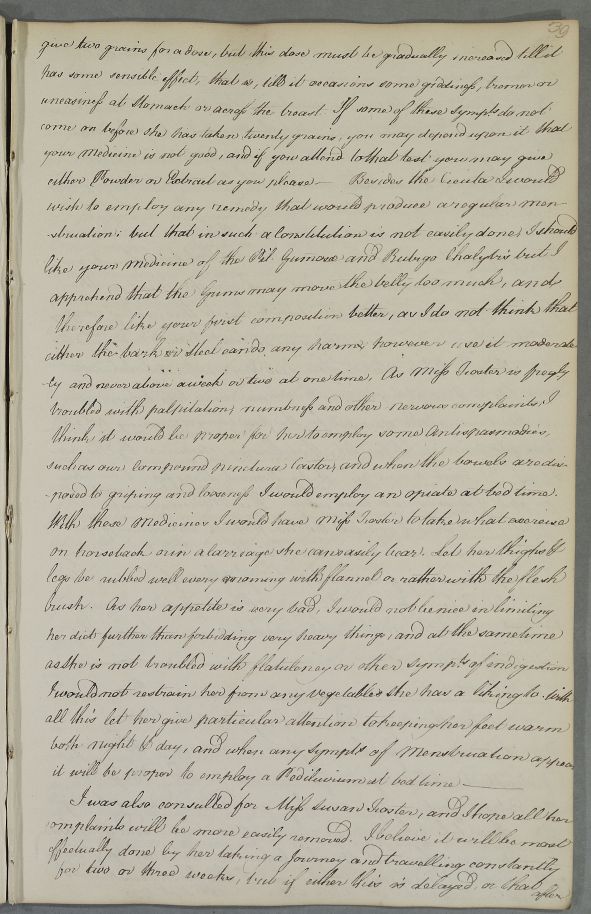 39
give two grains for a dose, but this dose must be gradually increased till it
has some sensible effect, that is, till it occasions some giddiness, tremor or
uneasiness at Stomach or across the breast. If some of these Sympts do not
come on before she has taken twenty grains, you may depend upon it that
your Medicine is not good, and if you attend to that test you may give
either Powder or Extract as you please — Besides the Cicuta I would
wish to employ any remedy that would produce a regular men-
-struation; but that in such a Constitution is not easily done, I should
like your medicine of the Pil. Gumosæ and Rubigo Chalybis but I
apprehend that the Gums may move the belly too much, and
therefore like your first composition better, as I do not think that
either the bark or Steel can do any harm, however use it moderate-
-ly and never above a week or two at one time. As Miss is freqly
troubled with palpitation, numbness and other nervous complaints, I
think it would be proper for her to employ some Antispasmodics,
such as our Compound Tinctura Castor, and when the bowels are dis-
-posed to griping and looseness I would employ an opiate at bed time.
With these Medicines I would have Miss to take what exercise
on horseback or in a Carriage she can easily bear. Let her thighs &
legs be rubbed well every morning with flannel or rather with the flesh
brush. As her appetite is very bad, I would not be nice in limiting
her diet further than forbidding very heavy things, and at the same time
as she is not troubled with flatulency or other Sympts of indigestion
I would not restrain her from any vegetables she has a liking to. With
all this let her give particular attention to keeping her feet warm
both night & day, and when any Sympts of Menstruation appear
it will be proper to employ a Pediluvium at bed time —
I was also consulted for Miss Susan , and I hope all her
complaints will be more easily removed. I believe it will be most
effectually done by her taking a Journey and travelling constantly
for two or three weeks, but if either this is delayed, or that
after